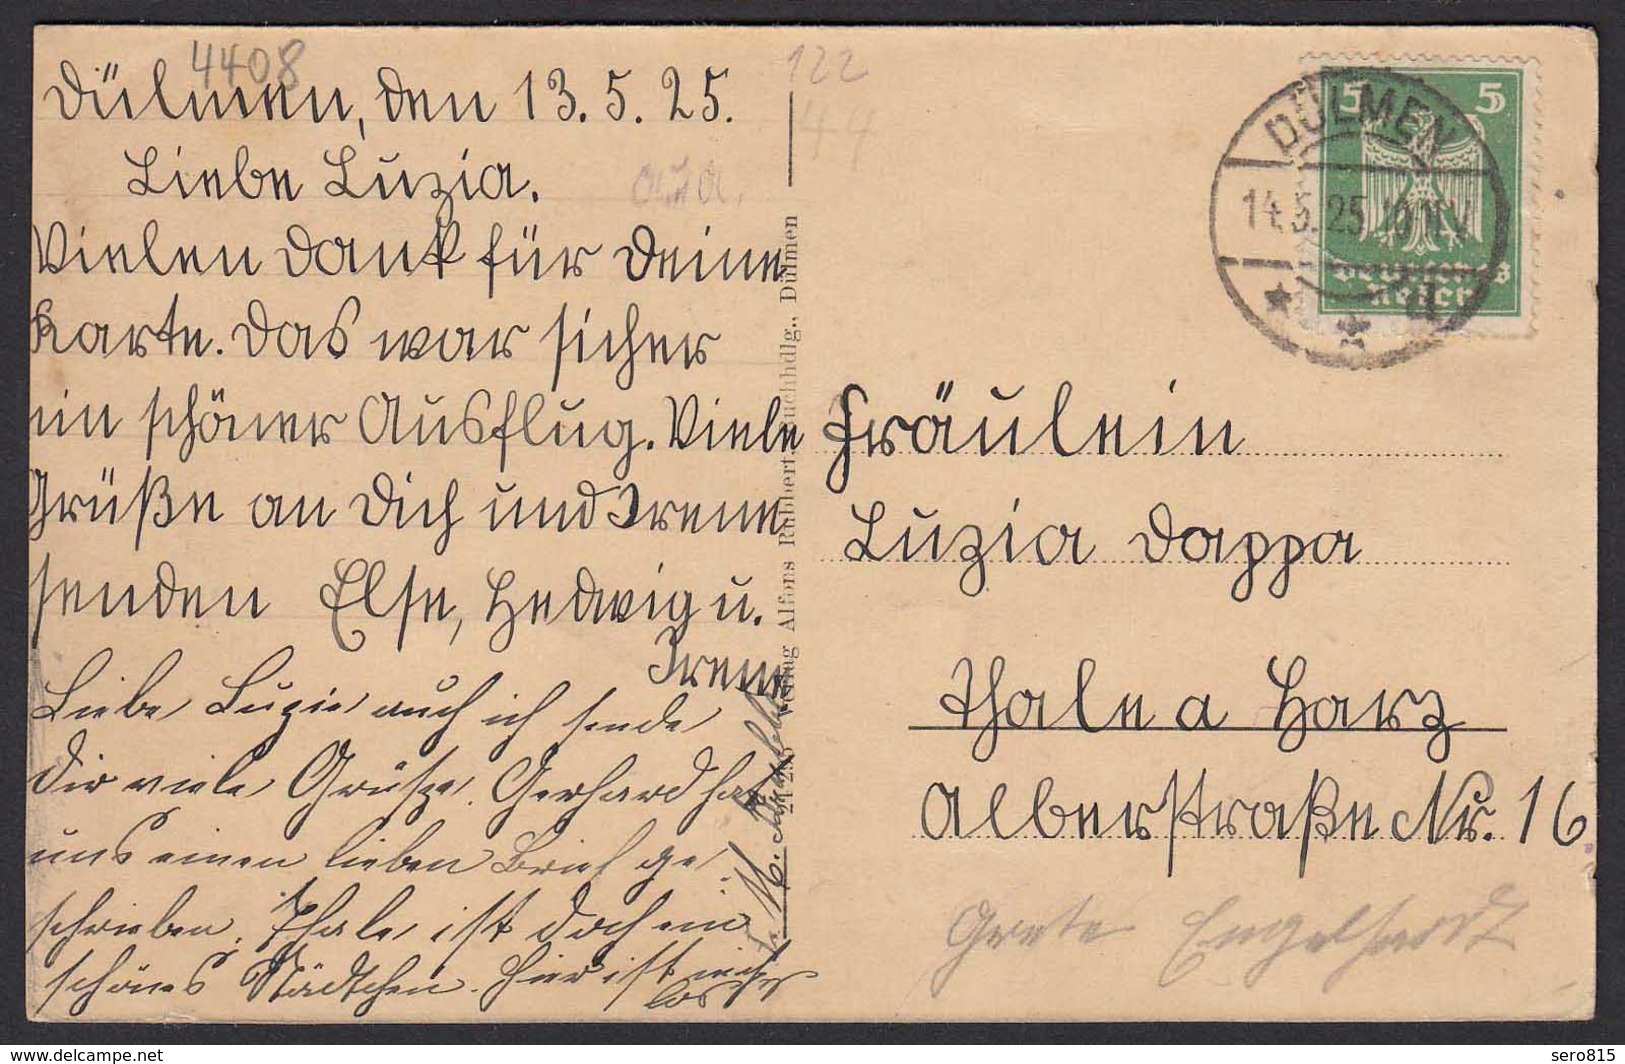 4408
Dülmen, den 13. 5. 25.
Liebe Luzia.
Vielen Dank für Deine
Karte. Das war sicher
ein schöner Ausflug. Viele
Grüße an Dich und Irene
senden Else, Hedwig u.
Irene
Liebe Luzie, auch ich sende
Dir viele Grüße. Gerhard hat
uns einen lieben Brief ge-
schrieben. Thale ist doch ein
schönes Städtchen. Hier ist nichts
los
122
44
Verlag Alfons Rubbert, Buchhdlg., Dülmen
DÜLMEN
14.5.25
5 5
Deutsches
Reich
Fräulein
Luzia Dappa
Thale a Harz
Alberstraße Nr. 16.
Grete Engelhardt
sero815